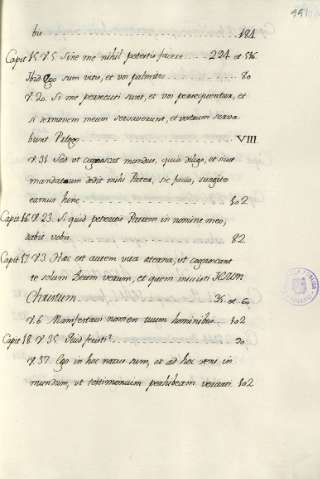 bis ........ 181
Capit 15. V. 5. Sine me nihil potestis facere ..... 224 et 516
Ibid. Ego sum vitis, et vos palmites ........ 80
V. 20. Si me persecuti sunt, et vos persequentur, et
si sermonem meum servaverunt, et vestrum serva
bunt. ........ VIII.
V. 31. Sed ut cognoscat mundus, quia diligo, et sicut
mandatum dedit mihi Pater, sic facio, surgite
eamus hinc ........ 102
Capit 16. V. 23. Si quid petieritis Patrem in nomine meo,
dabit vobis ........ 82
Capit 17. V. 3. Hæc est autem vita æterna, ut cognoscant
te solum Deum verum, et quem missisti
Christum. ........ 35 et 60
V. 6. Manifestavi nomen tuum hominibus ... 102
Capit 18. V. 35. Quid fecisti? ........ 20
V. 37. Ego in hoc natus sum, et ad hoc veni in
mundum, ut testimonium perhibeam veritati. 102